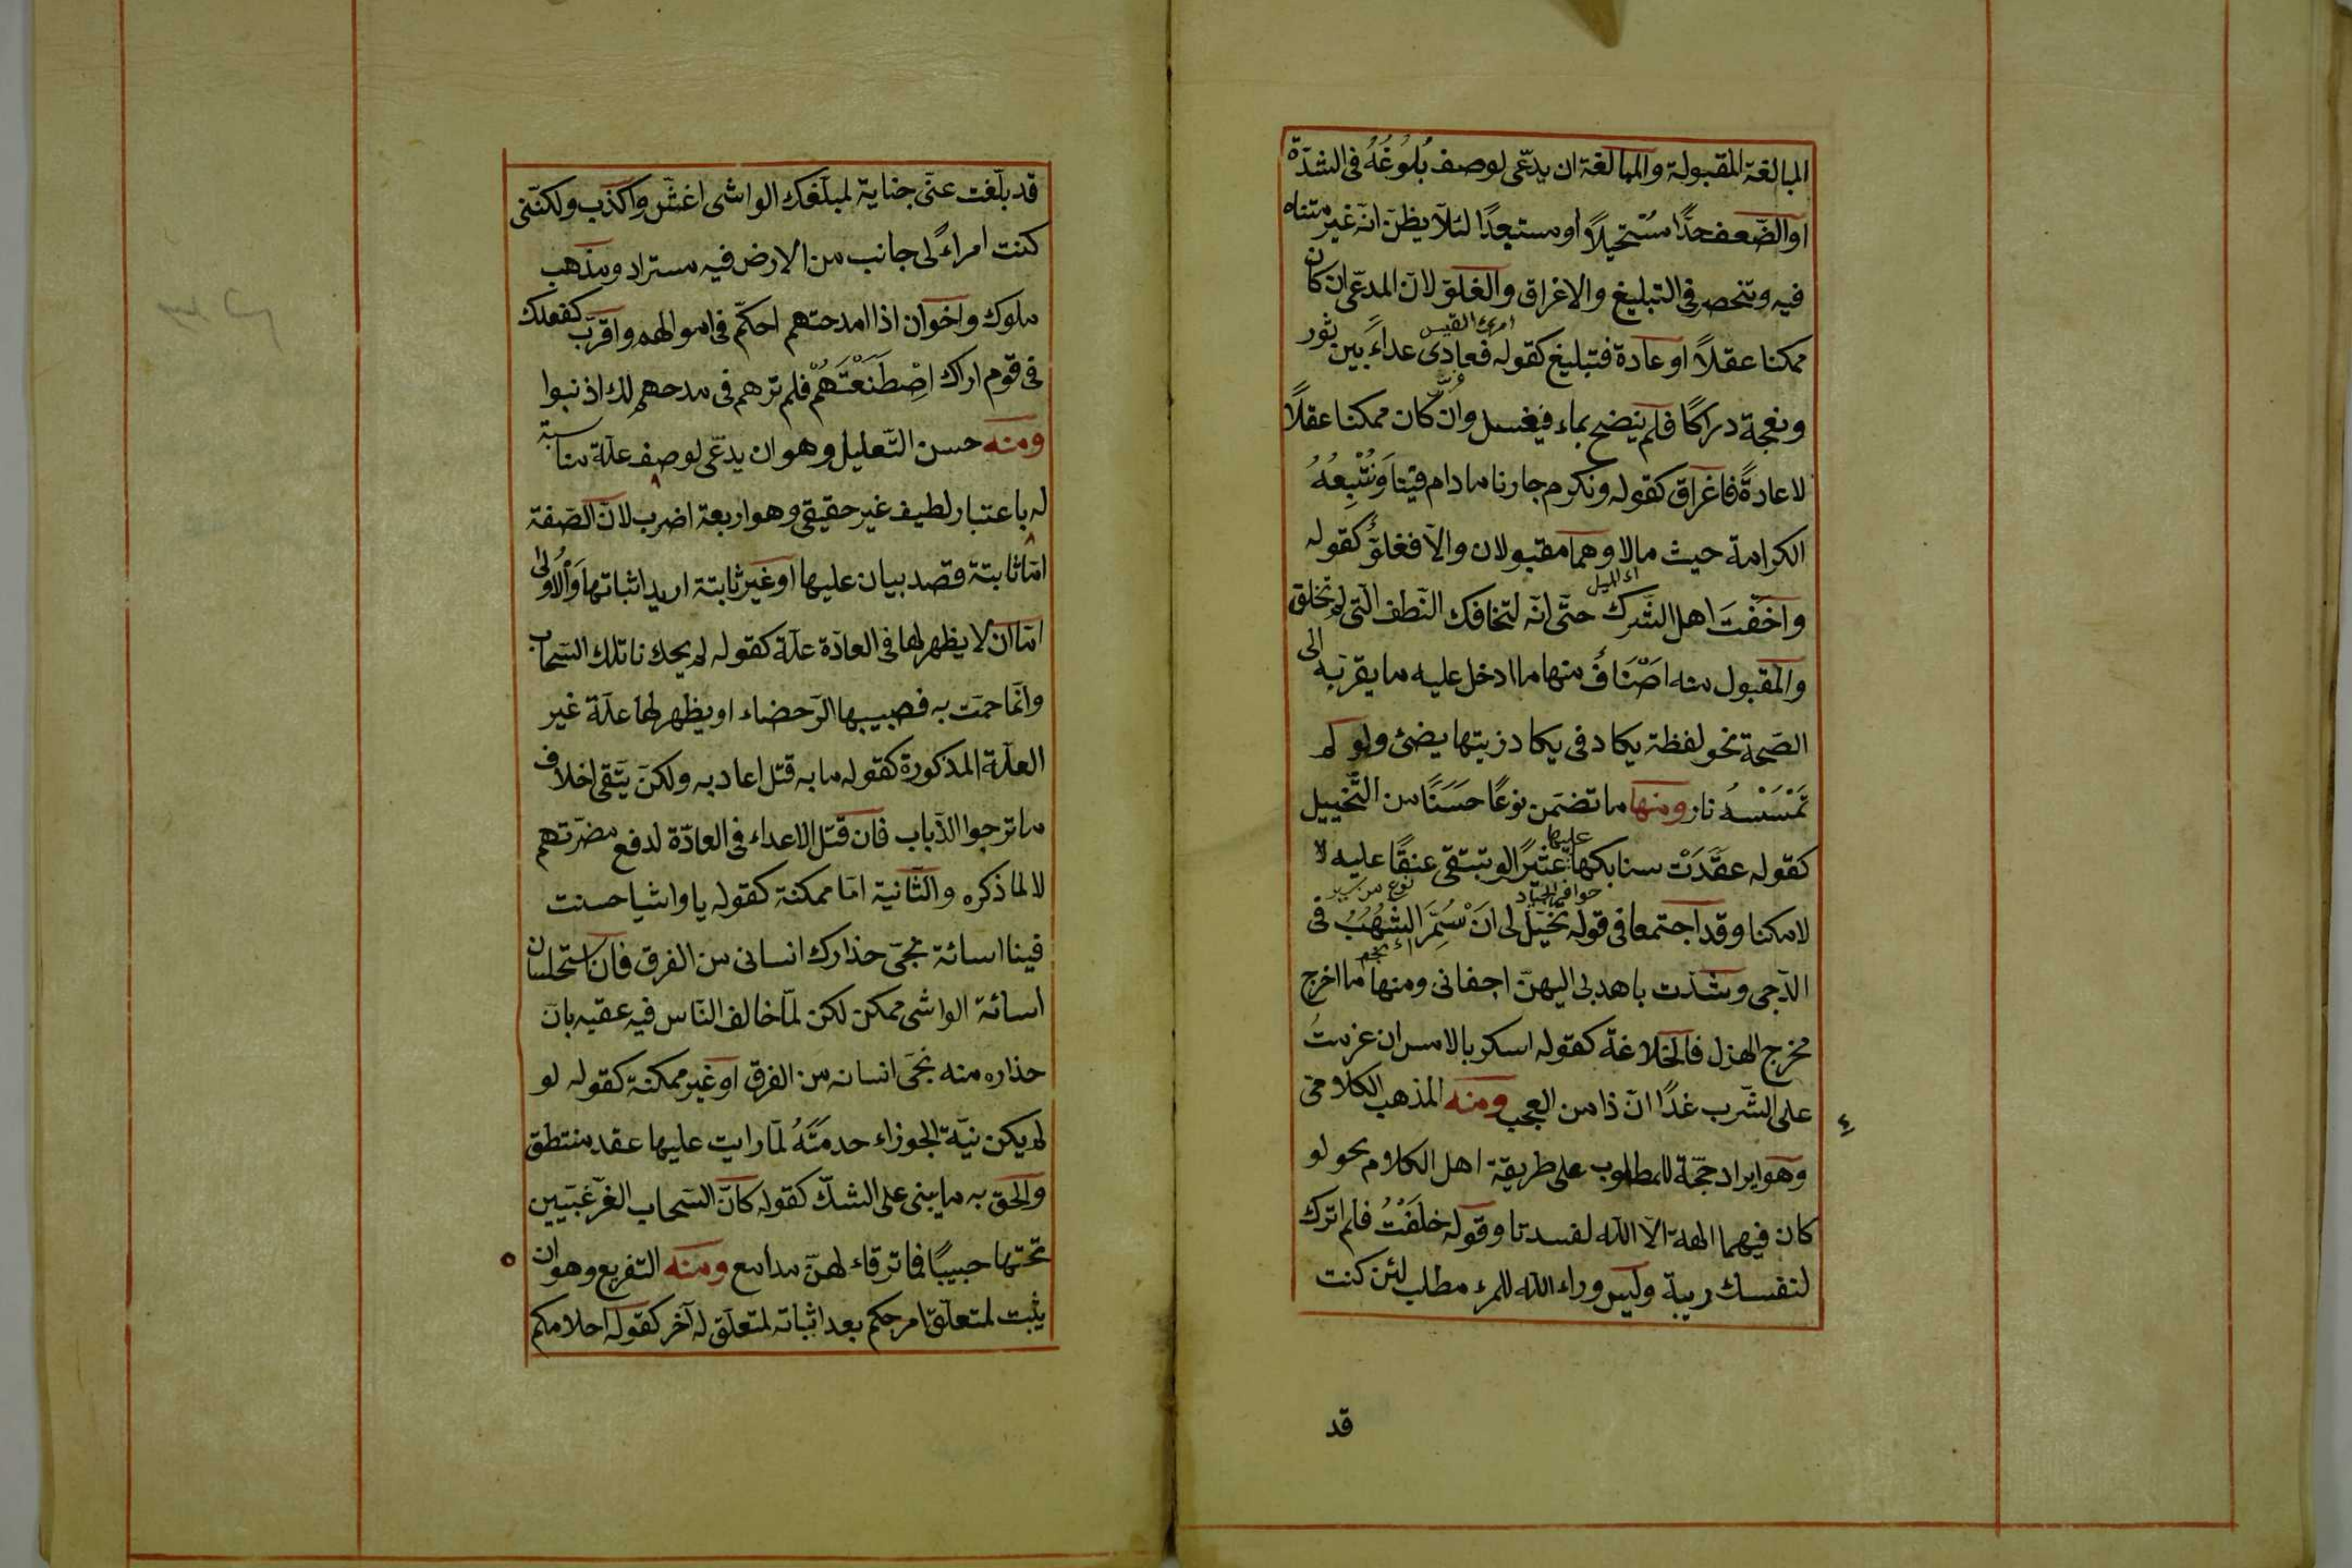 المبالغة المقبولة والمبالغة ان يدّعى لوصف بُلُوغُهُ فى الشدّة
او الضّعف حدًّا مُسْتحيلاً او مستبعدًا لئلّا يظنّ انّه غير متناه
فيه وتنحصر فى التبليغ والاغراق والغلوّ لانّ المدّعى ان كان
امرئ القيس
ممكنا عقلاً او عادة فتبليغ كقوله فعادى عداءً بين ثور
ونعجة دراكًا فلم ينضح بماء فيغسل وان كان ممكنا عقلاً
لا عادةً فاغراق كقوله ونكرم جارنا مادام فيناَ وَنُتْبِعُهُ
الكرامة حيث مالا وهما مقبولان والّا فغلوٌّ كقوله
واَخَفْتَ اهل الشّرك حتّى انّه لتخافك النّطف الّتى لم تخلق
والمقبول منه اَصْنَافٌ منها ما ادخل عليه ما يقرّبه الى
الصّحة نحو لفظة يكاد فى يكاد زيتها يضئ ولو لم
تَمْسَسْهُ نار ومنها ما تضمّن نوعًا حَسَنًا من التَّخييل
عليها
كقوله عقَّدَتْ سنابكها عثيرًا لو تبتقى عنقًا عليه لا
حوافر الجياد نوع من سير
لامكنا وقد اجتمعا فى قوله تخيّل لى اَنْ سُمِّرَ الشُّهُبُ فى
اى نجم
الدّجى وشدّت باهدبى اليهنّ اجفانى ومنها ما اخرج
مخرج الهزل فالخلاعة كقوله اسكر بالامس ان عزمتُ
على الشّرب غدًا انّ ذا من العجب ومنه المذهب الكلامىّ
وهو ايراد حجّة للمطلوب على طريقة اهل الكلام نحو لو
كان فيهما الهة الّا اللّه لفسدتا وقوله حلَفْتُ فلم اترك
لنفسك ريبة وليس وراء اللّه للمرء مطلب لئن كنت
قد
قد بلّغت عنّى جناية لمبلّغك الواشى اغشّ واكذب ولكنّنى
كنت امراءً لى جانب من الارض فيه مستراد ومذهب
ملوك واخوان اذا امدحتهم احكّم فى اموالهم واقرّب كفعلك
فى قوم اراك اصْطَنَعْتَهُمْ فلم ترهم فى مدحهم لك اذنبوا
ومنه حسن التّعليل وهو ان يدّعى لوصف علّة مناسبة
له باعتبار لطيف غير حقيقى وهو اربعة اضرب لانّ الصّفة
امّا ثابتة قصد بيان عليها او غير ثابتة اريد اثباتها وَالْاُولٰى
امّا ان لا يظهر لها فى العادّة علّة كقوله لم يحك نائلك السّحاب
وانّما حمّت به فصبيبها الرّحضاء او يظهر لها علّة غير
العلّة المذكورة كقوله ما به قتل اعاديه ولكن يتّقى اخلاف
ما ترجوا الذّباب فان قتل الاعداء فى العادّة لدفع مضرّتهم
لا لما ذكره والثّانية امّا ممكنة كقوله يا واشيا حسنت
فينا اسائة نجّى حذارك انسانى من الغرق فانّ استحسان
اسائة الواشى ممكن لكن لمّا خالف النّاس فيه عقبه بانّ
حذاره منه نجّى انسانه من الغرق او غير ممكنة كقوله لو
لم يكن نيّة الجوزاء خدمَتَهُ لمّا رايت عليها عقد منتطق
والحق به ما يبنى على الشكّ كقوله كانّ السّحاب الغرّ غيّبين
تحتها حبيبًا فما ترقاء لهنّ مدامع ومنه التفريع وهو ان
يثبت لمتعلّق امر حكم بعد اثباته لمتعلّق له آخر كقوله احلامكم